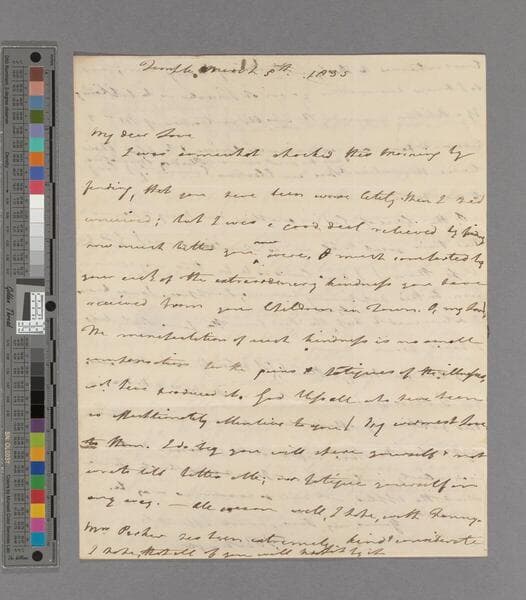 Temple March 5th 1835
My dear Love
I was somewhat shocked this morning by
finding, that you have been worse lately than I had
conceived; but I was a good deal relieved by finding
how much better you now were, & much comforted by
your acct of the extraordinary kindness you have
received from your Children in Town. O, my Love,
The manifestation of such kindness is no small
compensation for the pains & fatigues of the illness,
have produced it. God bless all who have been
so affectionately attentive to you! My warmest Love
to them. I do beg you will spare yourself & not
write till better able; nor fatigue yourself in
any way. — All seem well, I hope, with Fanny.
Mrs Parker has been extremely kind & considerate
I hope, that all of you will by it